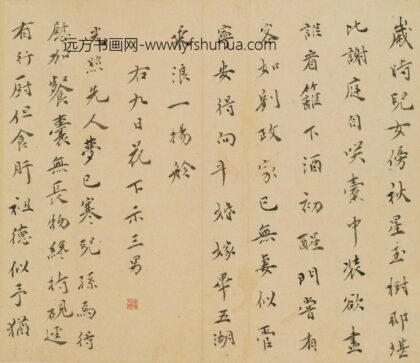 远方书画网-www.yfshuhua.com
歲時兒女傍秋星玉樹那堪
比謝庭自咲橐中裝欲盡
誰看籬下酒初醒門皆有
客如劉政家已無妻似管
寧安得向平婚嫁畢五湖
乘浪一揚舲
右九日花下示三男
照先人夢已寒兒孫馬行
慰加餐囊無長物終持硯
有行廚但食肝祖德似予猶